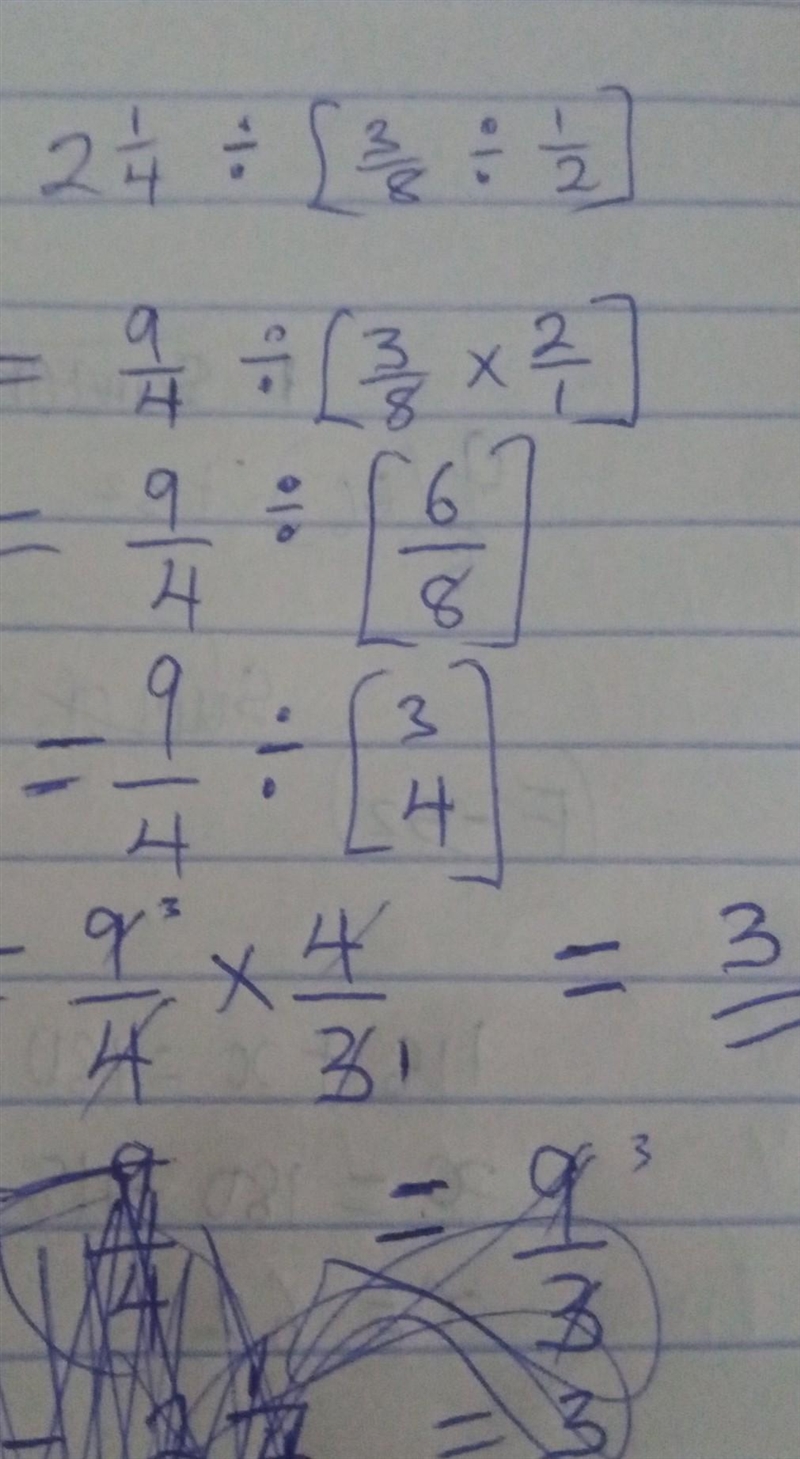 2 1/4 ÷ [3/8 ÷ 1/2]
= 9/4 ÷ [3/8 × 2/1]
= 9/4 ÷ [6/8]
= 9/4 ÷ [3 4]
= 9³/4 × 4/3 1 = 3
9/4 = 9³/3
= 3